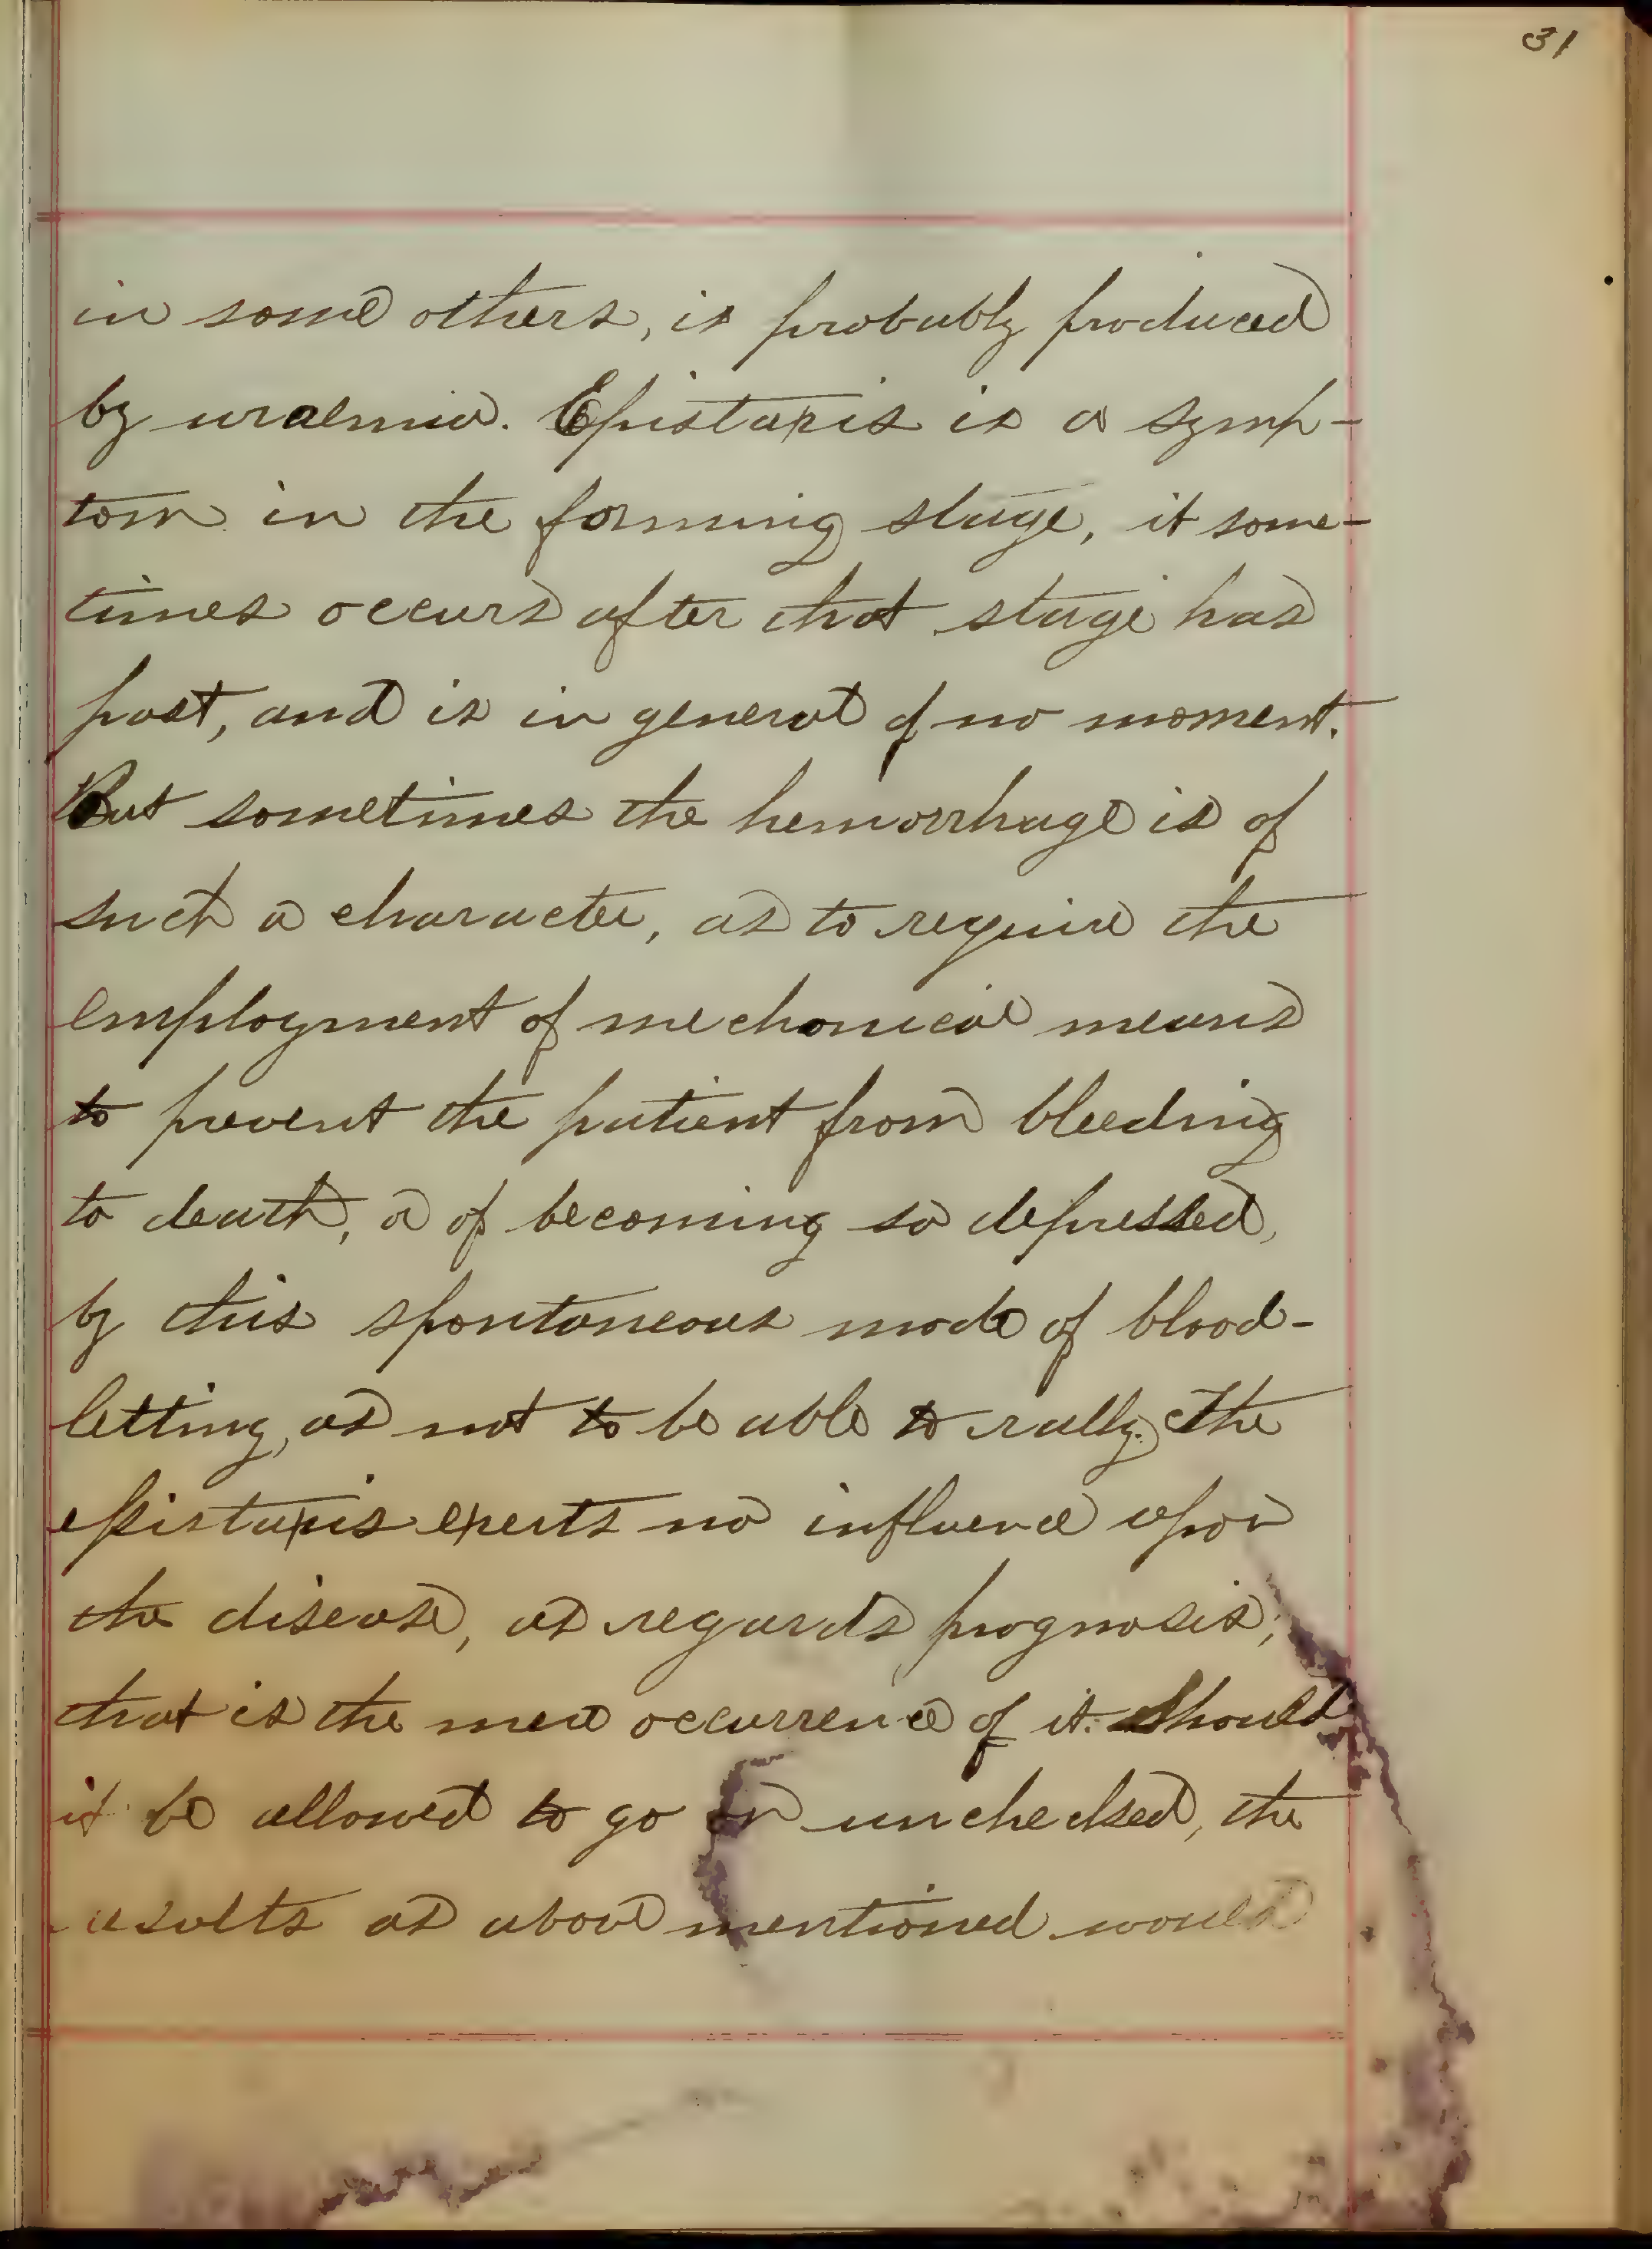 31
in some others, is probably produced
by uraemia. Epistaxis is a symp-
tom in the forming stage, it some-
times occurs after that stage has
past, and is in general of no moment.
But sometimes the hemorrhage is of
such a character, as to require the
employment of mechanical means
to prevent the patient from bleeding
to death, or of becoming so depressed,
by this spontaneous mode of blood-
letting, as not to be able to rally. The
epistaxis exerts no influence upon
the disease, as regards prognosis,
that is the mere occurrence of it. Should
it be allowed to go on unchecked, the
results as above mentioned would